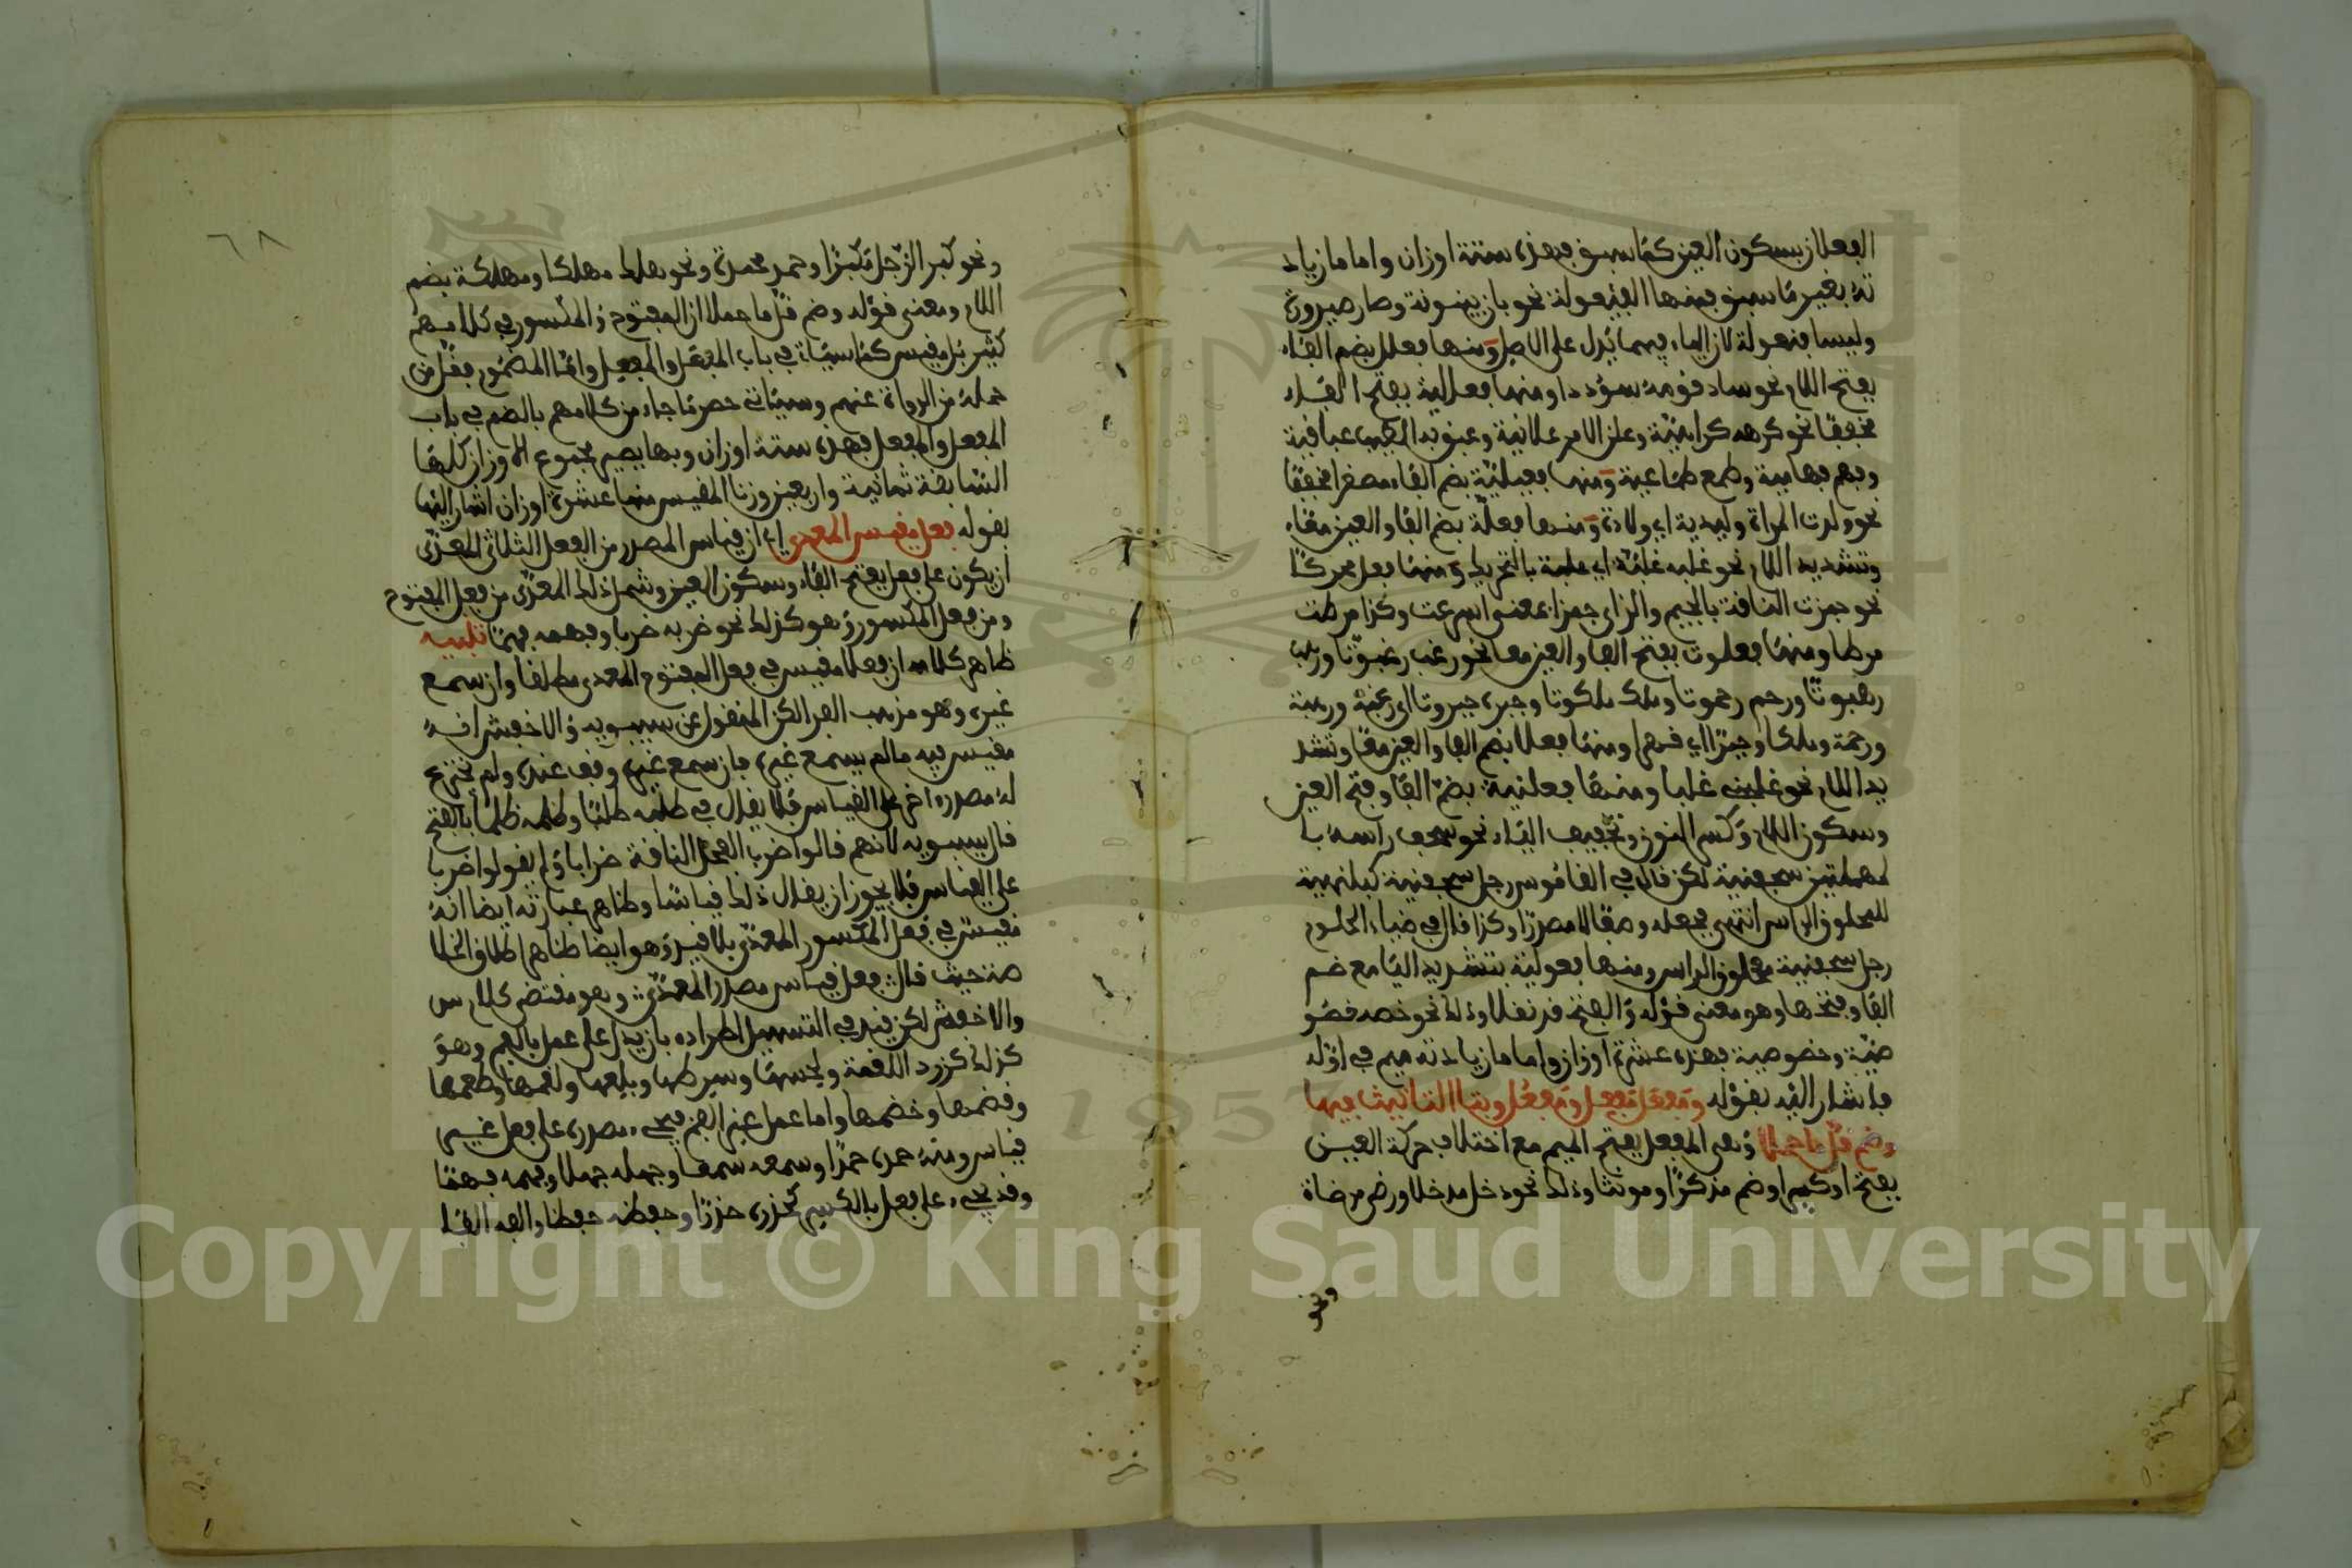 الفعلان بسكون العين كما سبق فهذه ستة اوزان واما ما زياد
ته بغير ما سبق فمنها الفيعولة نحو بان بينونة وصار صيرورة
وليسا فنعولة لان الياء فيهما يدل على الاصل ومنها فعلل بضم الفاء
بفتح اللام نحو ساد قومه سؤددا ومنها فعالية بفتح الفاء
مخففا نحو كره كراهية وعلن الامر علانية وعبق به الطيب عباقية
وفهم فهامية وطمع طماعية ومنها فعيلية بضم الفاء مصغرا مخففا
نحو ولدت المراة وليدية اي ولادة ومنها فعلة بضم الفا والعين معاء
وتشديد اللام نحو غلبه غلبة اي غلبة بالتحريك ومنها فعلى محركا
نحو جمزت الناقة بالجيم والزاي جمزا بمعنى اسرعت وكذا مرطت
مرطا ومنها فعلوت بفتح الفا والعين معا نحو رغب رغبوتا ورهب
رهبوتا ورحم رحموتا وملك ملكوتا وجبره جبروتا اي رغبة ورهبة
ورحمة وملكا وجبرا اي قهرا ومنها فعلا بضم الفا والعين معا وتشد
يد اللام نحو غلبني غلبا ومنها فعلنية بضم الفا وفتح العين
وسكون اللام وكسر النون وتخفيف الياء نحو سحف راسه با
لمهملتين سحفنية لكن قال في القاموس رجل سحفنية كبلهنية
للمحلوق الراس انتهى فجعله وصفا لا مصدرا وكذا قال في ضياء الحلوم
رجل سحفنية محلوق الراس ومنها فعولية بتشديد اليا مع ضم
الفا وفتحها وهو معنى قوله والفتح قد نقلا وذلك نحو خصه خصو
صية وخصوصية فهذه عشرة اوزان واما ما زيادته ميم في اوله
فاشار اليه بقوله ومفعل مفعل ومفعل وبتا التانيث فيها
وضم قل ما حملا وهي المفعل بفتح الميم مع اختلاف حركة العين
بفتح اوكسر اوضم مذكرا ومونثا وذلك نحو دخل مدخلا ورضي مرضاة
ونحو
٦٨
ونحو كبر الرجل مكبرا وحمد محمدة ونحو هلك مهلكا ومهلكة بضم
اللام ومعنى قوله وضم قل ما حملا ان المفتوح والمكسور في كلامهم
كثير بل مقيس كما سياتي في باب المفعل والمفعل واما المضموم فقل من
حمله من الرواة عنهم وسياتي حصر ما جاء من كلامهم بالضم في باب
المفعل والمفعل فهذه ستة اوزان وبها يصير مجموع الاوزان كلها
السابقة ثمانية واربعين وزنا المقيس منها عشرة اوزان اشار اليها
بقوله فعل مقيس المعدى اي ان قياس المصدر من الفعل الثلاثي المعدى
ان يكون على فعل بفتح الفاء وسكون العين وشمل ذلك المعدى من فعل المفتوح
ومن فعل المكسور وهو كذلك نحو ضربه ضربا وفهمه فهما تنبيه
ظاهر كلامه ان فعلا مقيس في فعل المفتوح المعدى مطلقا وان سمع
غيره وهو مذهب الفرا لكن المنقول عن سيبويه والاخفش انه
مقيس فيه ما لم يسمع غيره فان سمع غيره وقف عنده ولم يخترع
له مصدر اخر على القياس فلا يقال في طلبه طلبا وظلمه ظلما بالفتح
قال سيبويه لانهم قالوا ضرب الفحل الناقة ضرابا ولم يقولوا ضربا
على القياس فلا يجوز ان يقال ذلك قياسا وظاهر عبارته ايضا انه
مقيس في فعل المكسور المعدى بلا قيد وهو ايضا ظاهر اطلاق الخلا
صة حيث قال فعل قياس مصدر المعدى وهو مقتضى كلام س
والاخفش لكن قيد في التسهيل اطراده بان يدل على عمل بالفم وهو
كذلك كزرد اللقمة ولحسها وسرطها وبلعها ولقمها وطعمها
وقضمها وخضمها واما عمل غير الفم فيجيء مصدره على فعل غير
قياس ومنه حمده حمدا وسمعه سمعا وجهله جهلا وفهمه فهما
وقد يجيء على فعل بالكسر كحذره حذرا وحفظه حفظا والفه الفا